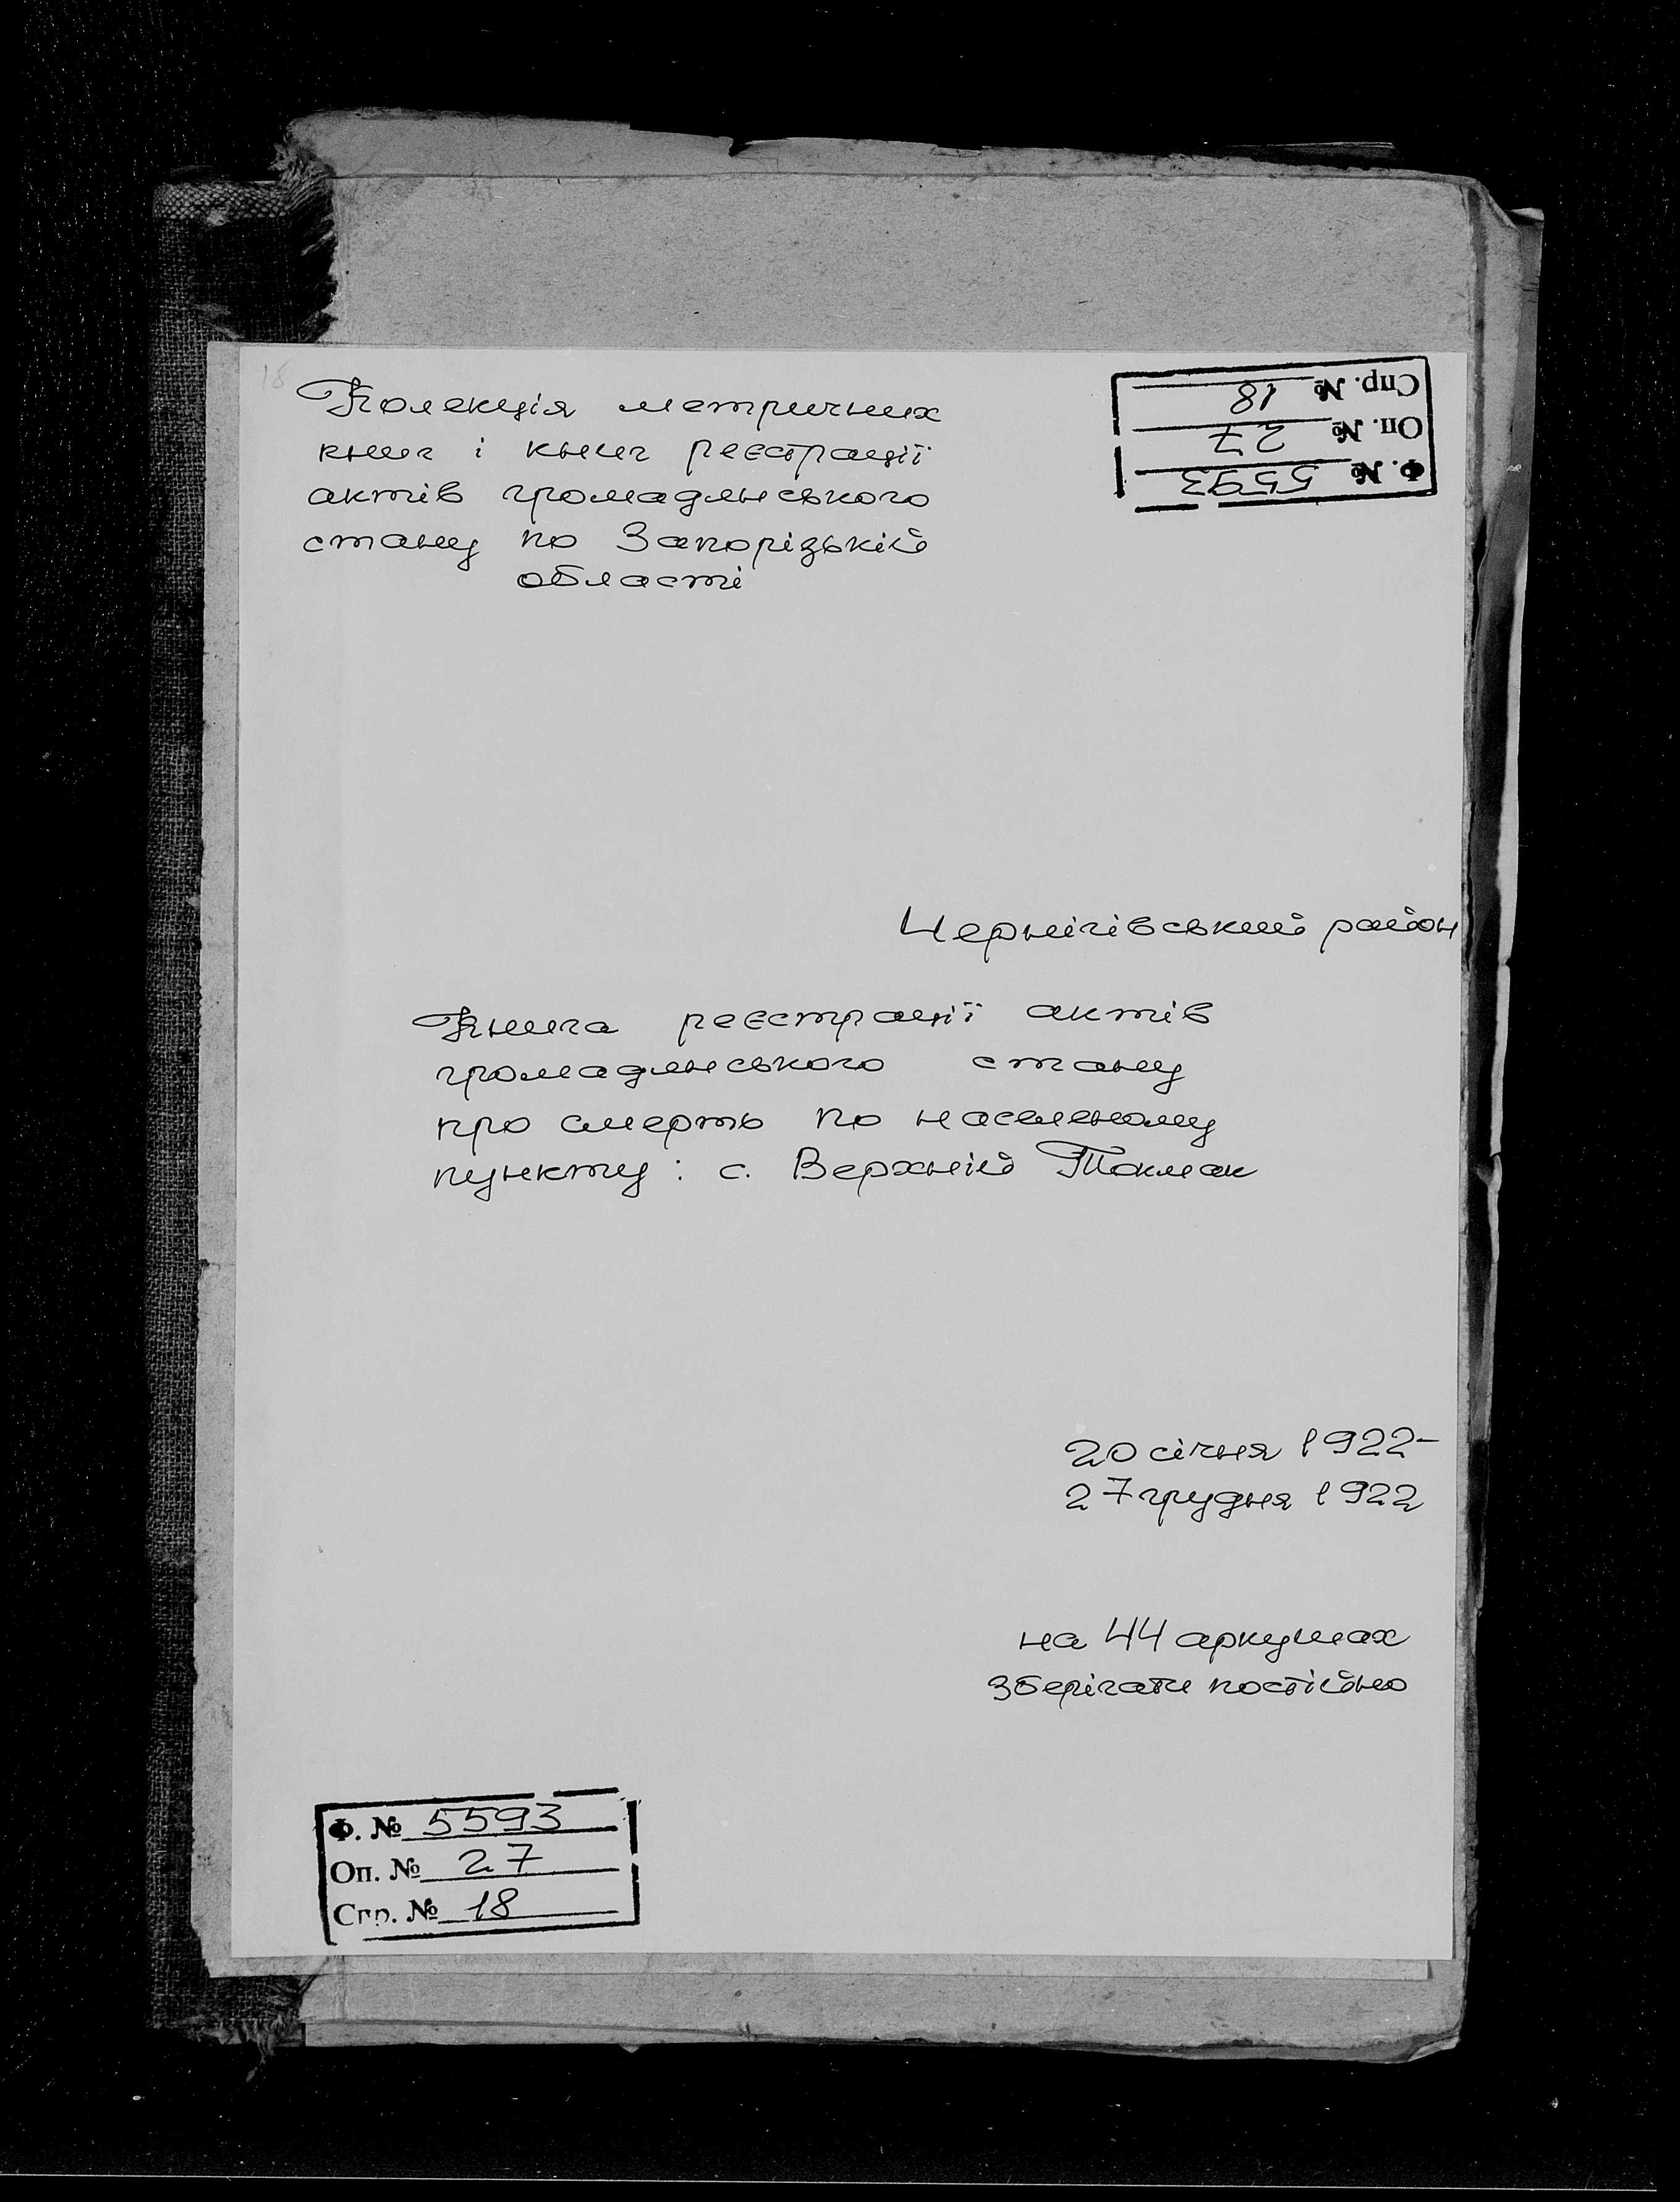 18
Колекція метричних
книг і книг реєстрації
актів громадянського
стану по Запорізькій
області
Ф. № 5593
Оп. № 27
Спр. № 18
Чернігівський район
Книга реєстрації актів
громадянського стану
про смерть по населеному
пункту: с. Верхній Токмак
20 січня 1922-
27 грудня 1922
на 44 аркушах
зберігати постійно
Ф. № 5593
Оп. № 27
Спр. № 18